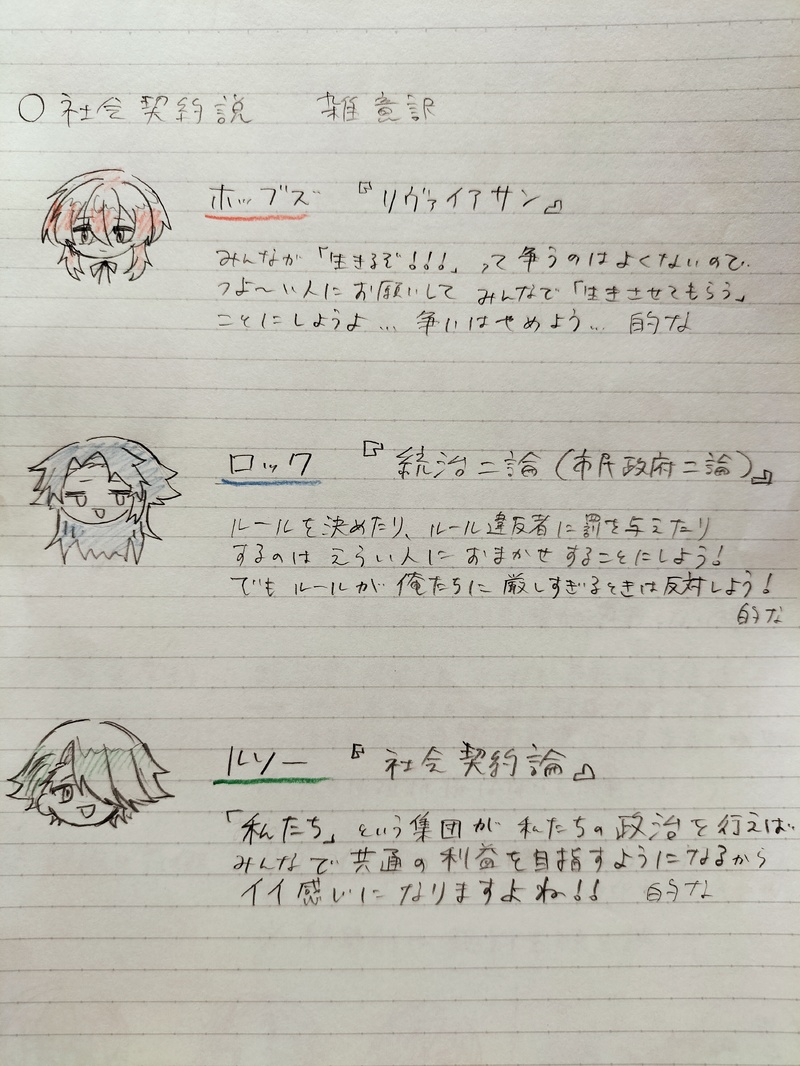 ○社会契約説　雑意訳
ホッブズ　『リヴァイアサン』
みんなが「生きるぞ!!!」って争うのはよくないので、
つよ〜い人にお願いして みんなで「生きさせてもらう」
ことにしようよ… 争いはやめよう… 的な
ロック　『統治二論(市民政府二論)』
ルールを決めたり、ルール違反者に罰を与えたり
するのは えらい人に おまかせすることにしよう!
でも ルールが 俺たちに 厳しすぎるときは反対しよう!
的な
ルソー　『社会契約論』
「私たち」という集団が 私たちの政治を行えば、
みんなで共通の利益を目指すようになるから
イイ感じになりますよね!! 的な